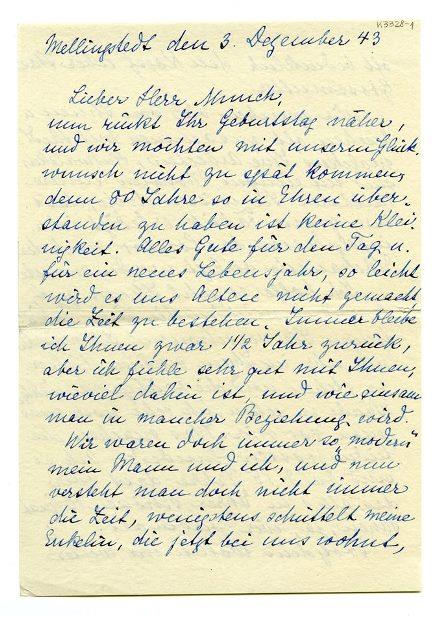 K3328-1
Mellingstedt den 3. Dezember 43
Lieber Herr Munch,
nun rückt Ihr Geburtstag näher,
und wir möchten mit unserm Glück-
wunsch nicht zu spät kommen,
denn 80 Jahre so in Ehren über-
standen zu haben ist keine Klei-
nigkeit. Alles Gute für den Tag u.
für ein neues Lebensjahr, so leicht
wird es uns Alten nicht gemacht
die Zeit zu bestehen. Immer bleibe
ich Ihnen zwar 1 1/2 Jahr zurück,
aber ich fühle sehr gut mit Ihnen,
wieviel dahin ist, und wie einsam
man in mancher Beziehung wird.
Wir waren doch immer so "modern"
mein Mann und ich, und nun
versteht man doch nicht immer
die Zeit, wenigstens schüttelt meine
Enkelin, die jetzt bei uns wohnt,